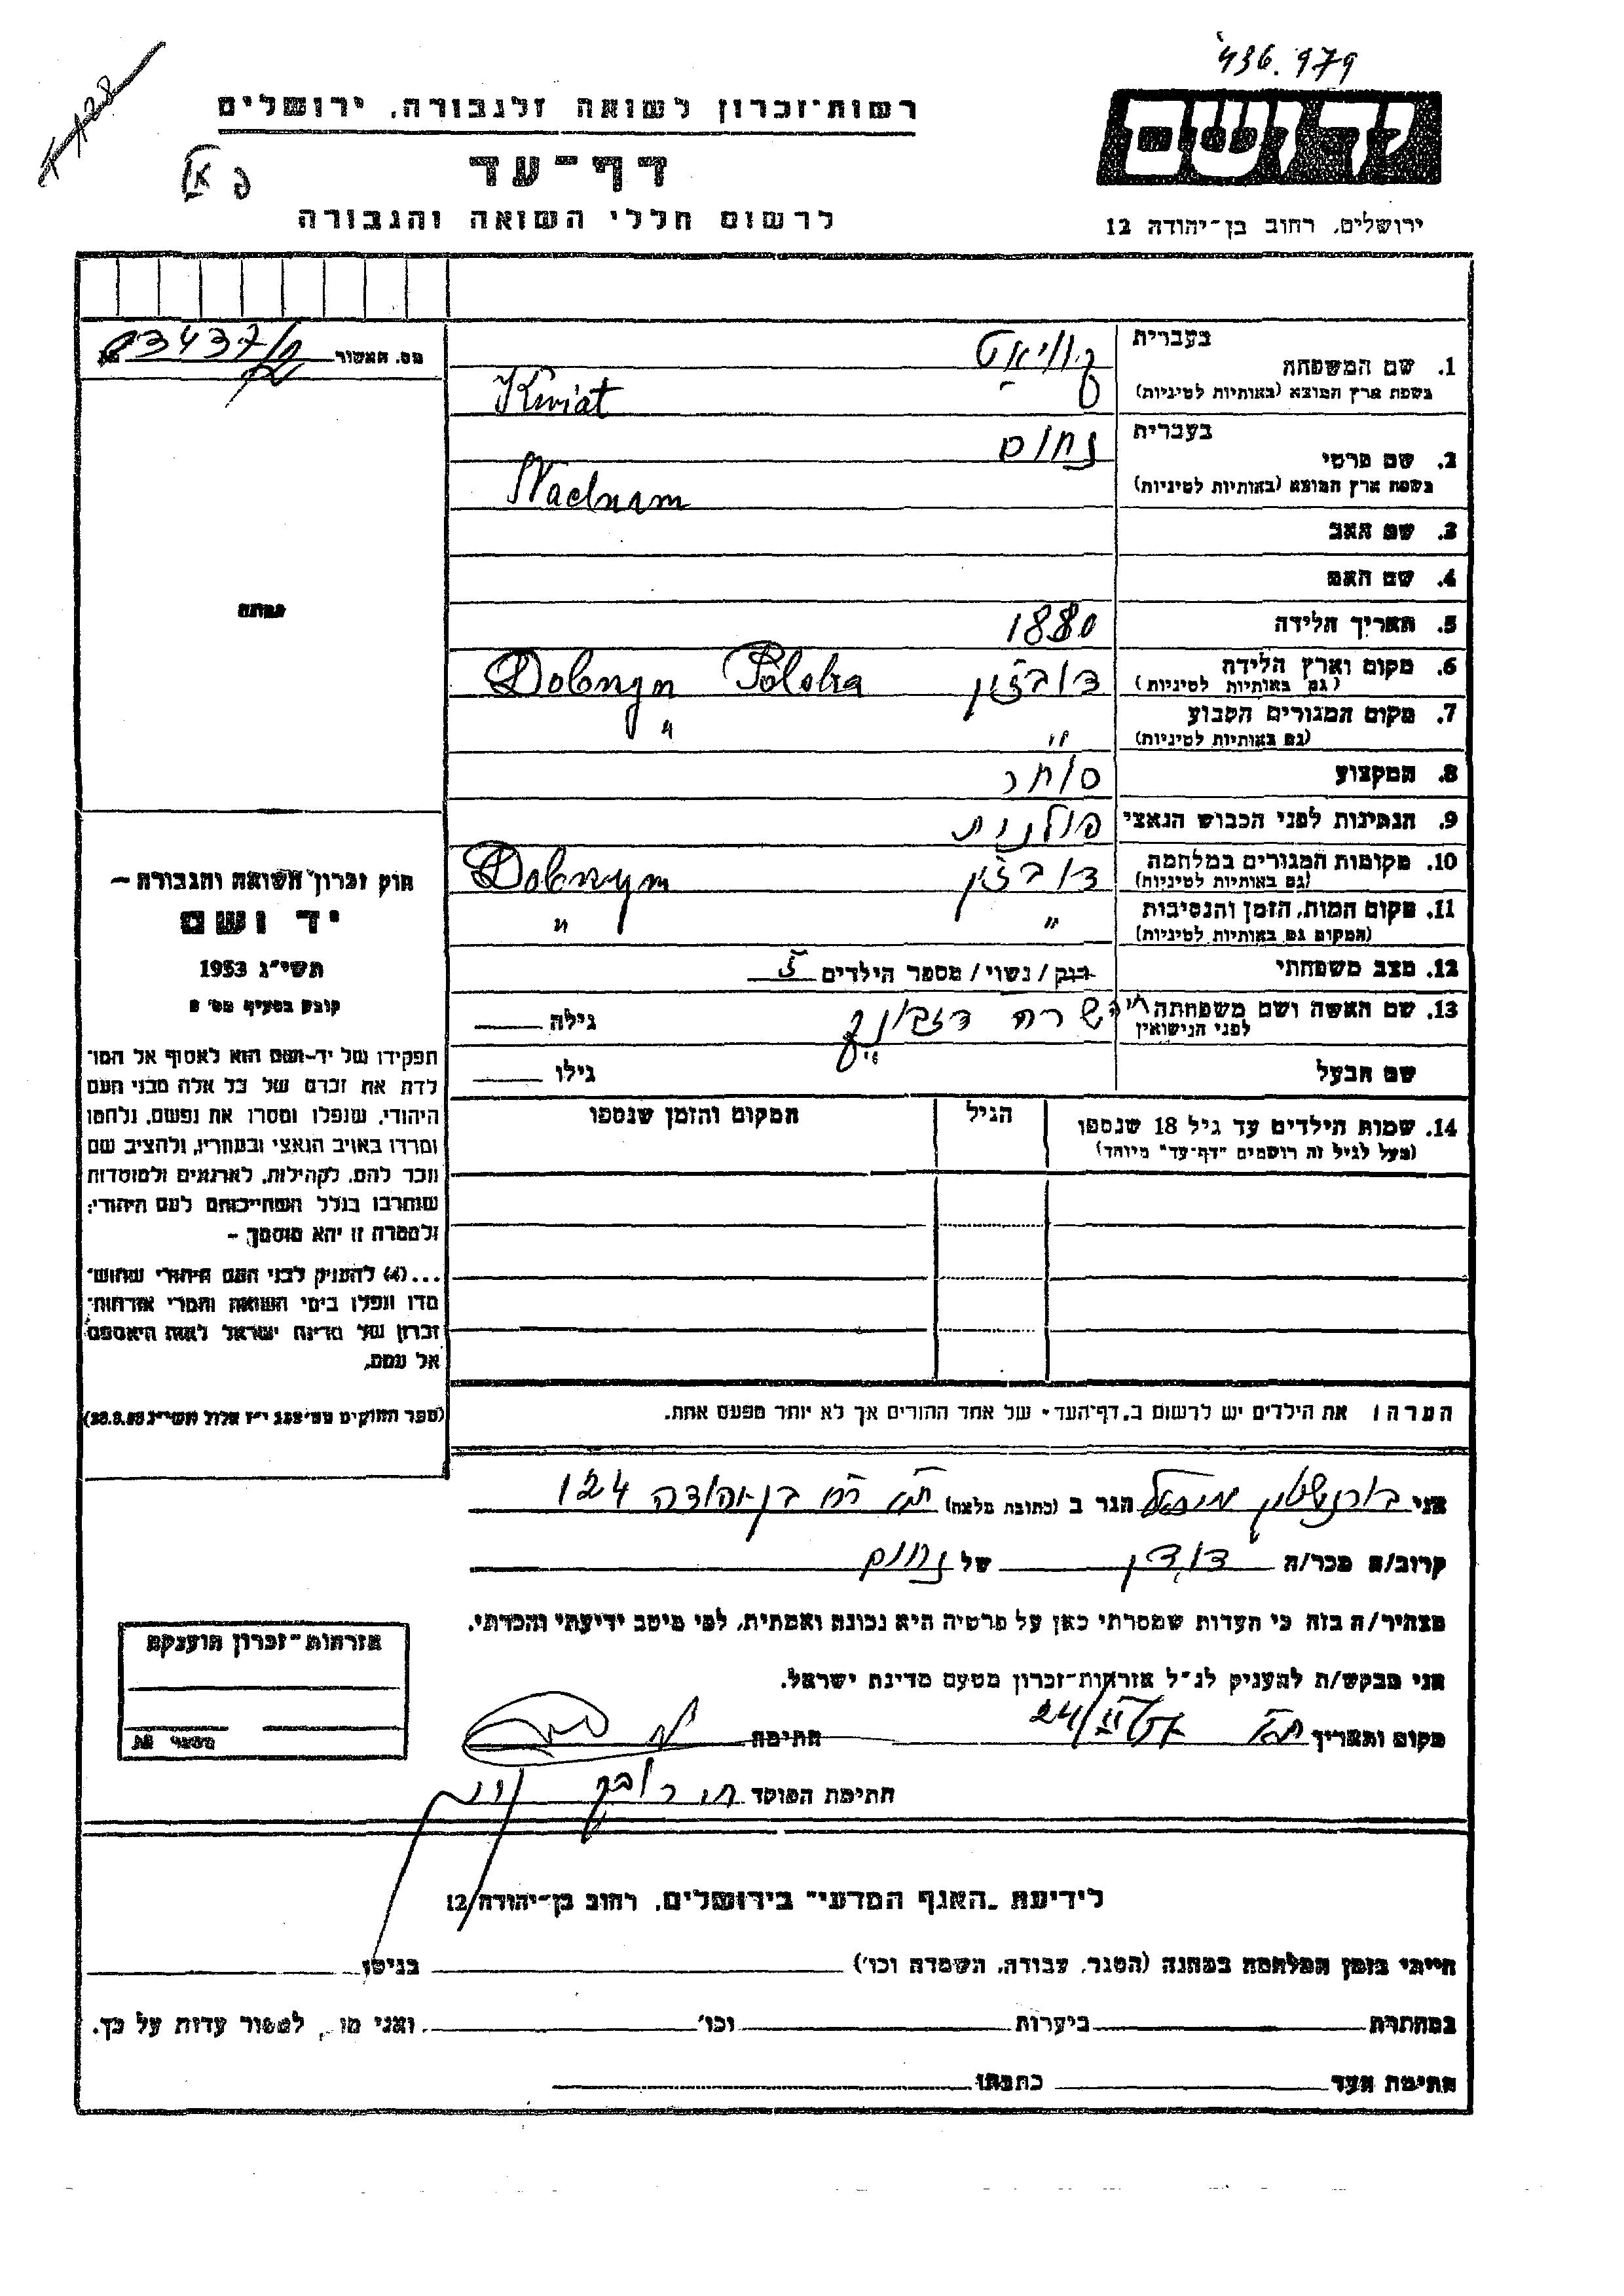 436.979
רשות־זכרון לשואה ולגבורה, ירושלים
יד ושם
דף־עד
לרשום חללי השואה והגבורה
ירושלים, רחוב בן־יהודה 12
בעברית קוויאט
1. שם המשפחה
בשפת ארץ המוצא (באותיות לטיניות) Kwiat
בעברית נחום
2. שם פרטי
בשפת ארץ המוצא (באותיות לטיניות) Nachum
3. שם האב
4. שם האם
5. תאריך הלידה 1880
6. מקום וארץ הלידה דובזין Dobzyn Polska
(גם באותיות לטיניות)
7. מקום המגורים הקבוע " "
(גם באותיות לטיניות)
8. המקצוע סוחר
9. הנתינות לפני הכבוש הנאצי פולנית
10. מקומות המגורים במלחמה דובזין Dobzyn
(גם באותיות לטיניות)
11. מקום המות, הזמן והנסיבות " "
(המקום גם באותיות לטיניות)
12. מצב משפחתי רווק / נשוי / מספר הילדים 5
13. שם האשה ושם משפחתה לפני הנישואין שרה גילה
שם הבעל גילו
14. שמות הילדים עד גיל 18 שנספו הגיל המקום והזמן שנספו
(מעל לגיל זה רושמים "דף־עד" מיוחד)
הערה: את הילדים יש לרשום ב"דף־העד" של אחד ההורים אך לא יותר מפעם אחת.
מס. האשור 03437
תמונה
חוק זכרון השואה והגבורה –
יד ושם
תשי"ג 1953
קובע בסעיף מס'
תפקידו של יד-ושם הוא לאסוף אל המו־
לדת את זכרם של כל אלה מבני העם
היהודי, שנפלו ומסרו את נפשם, נלחמו
ומרדו באויב הנאצי ובעוזריו, ולהציב שם
וזכר להם, לקהילות, לארגונים ולמוסדות
שנחרבו בגלל השתייכותם לעם היהודי;
ולמטרה זו יהא מוסמך –
...(4) להעניק לבני העם היהודי שהוש־
מדו ונפלו בימי השואה והמרי אזרחות־
זכרון של מדינת ישראל לאות היאספם
אל עמם.
(ספר החוקים מס' י"ז אלול תשי"ג
אני בורנשטין מיכאל הגר ב (כתובת מלאה) ת"א רח בן יהודה 124
קרוב/ה מכר/ה דודן של נחום
מצהיר/ה בזה כי העדות שמסרתי כאן על פרטיה היא נכונה ואמתית, לפי מיטב ידיעתי והכרתי.
אני מבקש/ת להעניק לנ"ל אזרחות־זכרון מטעם מדינת ישראל.
מקום ותאריך ת"א 24/II/57 חתימה
חתימת הפוקד
אזרחות־זכרון הוענקה
לידיעת "האגף המדעי" בירושלים, רחוב בן־יהודה 12
הייתי בזמן המלחמה במחנה (הסגר, עבודה, השמדה וכו') בגיטו
במחתרת ביערות וכו' ואני לספור עדות על כך.
חתימת העד כתבתו